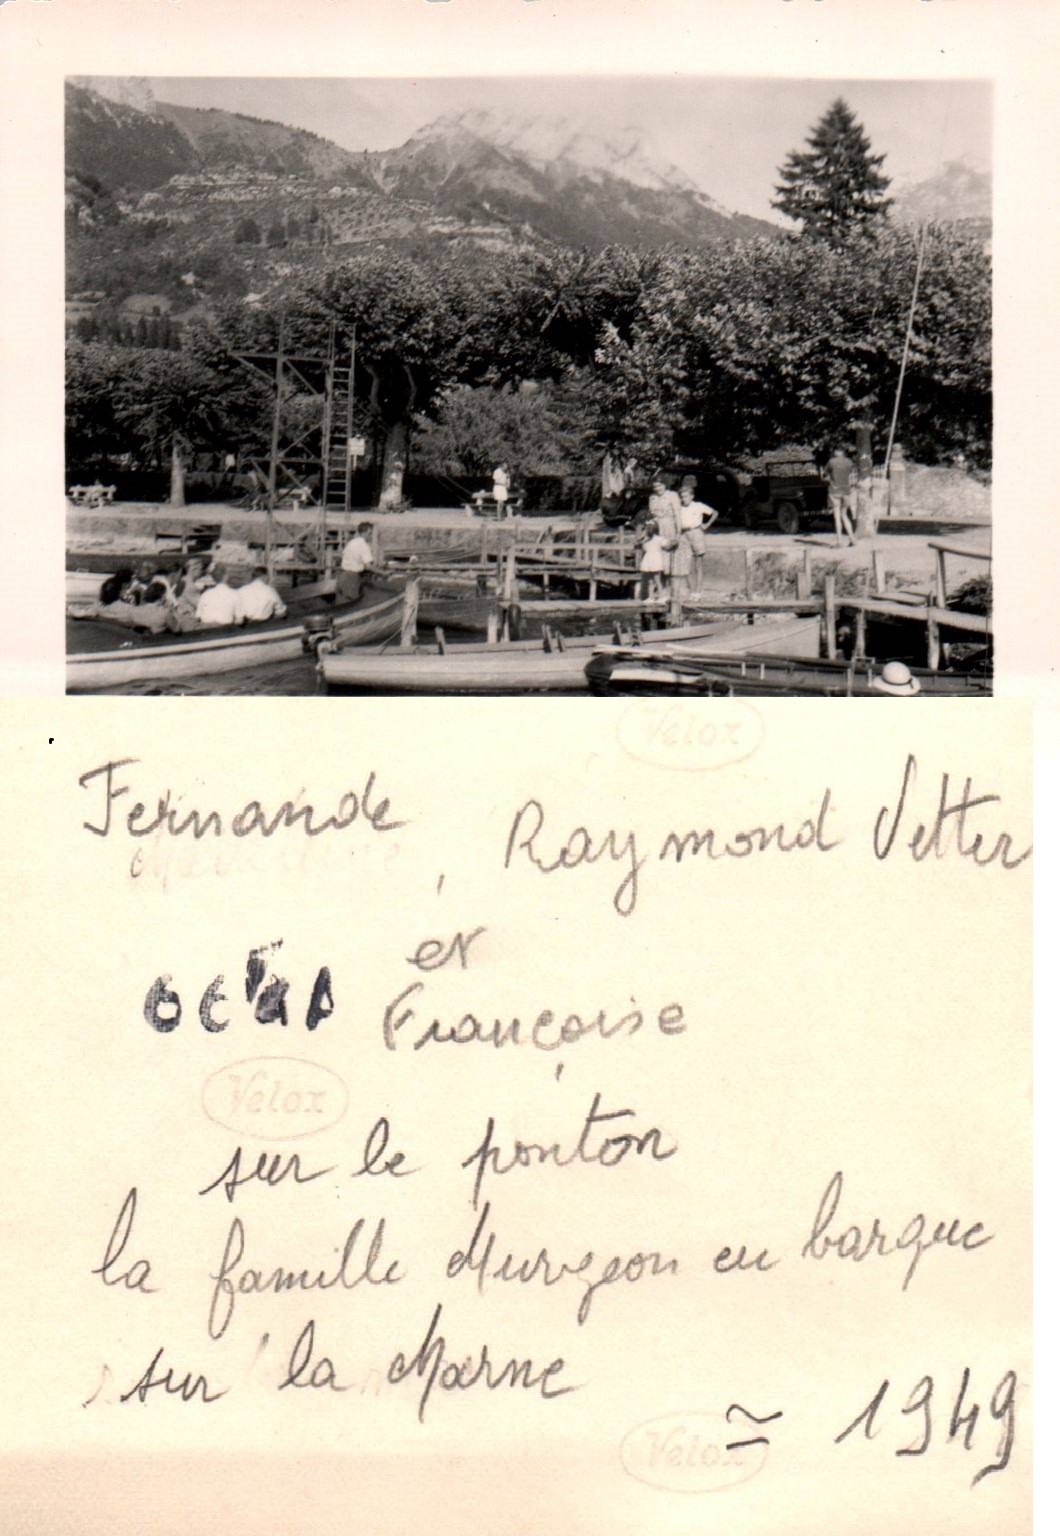 Velox
Fernande, Raymond Vetter
et
Françoise
Velox
sur le ponton
la famille Murgeon en barque
sur la Marne
≃ 1949
Velox